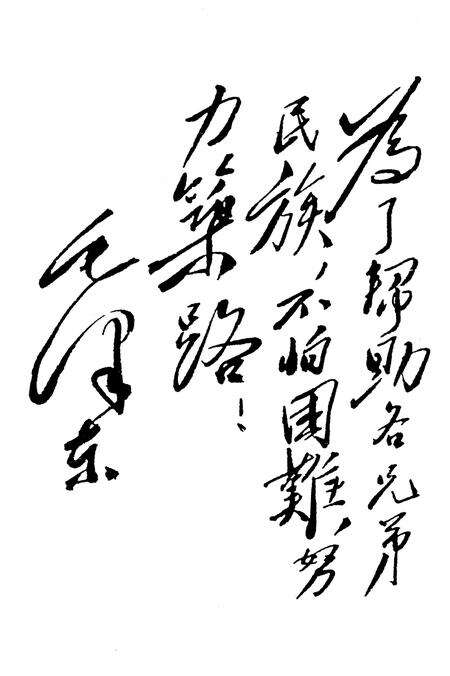 為了帮助各兄弟
民族，不怕困難，努
力築路！
毛澤东